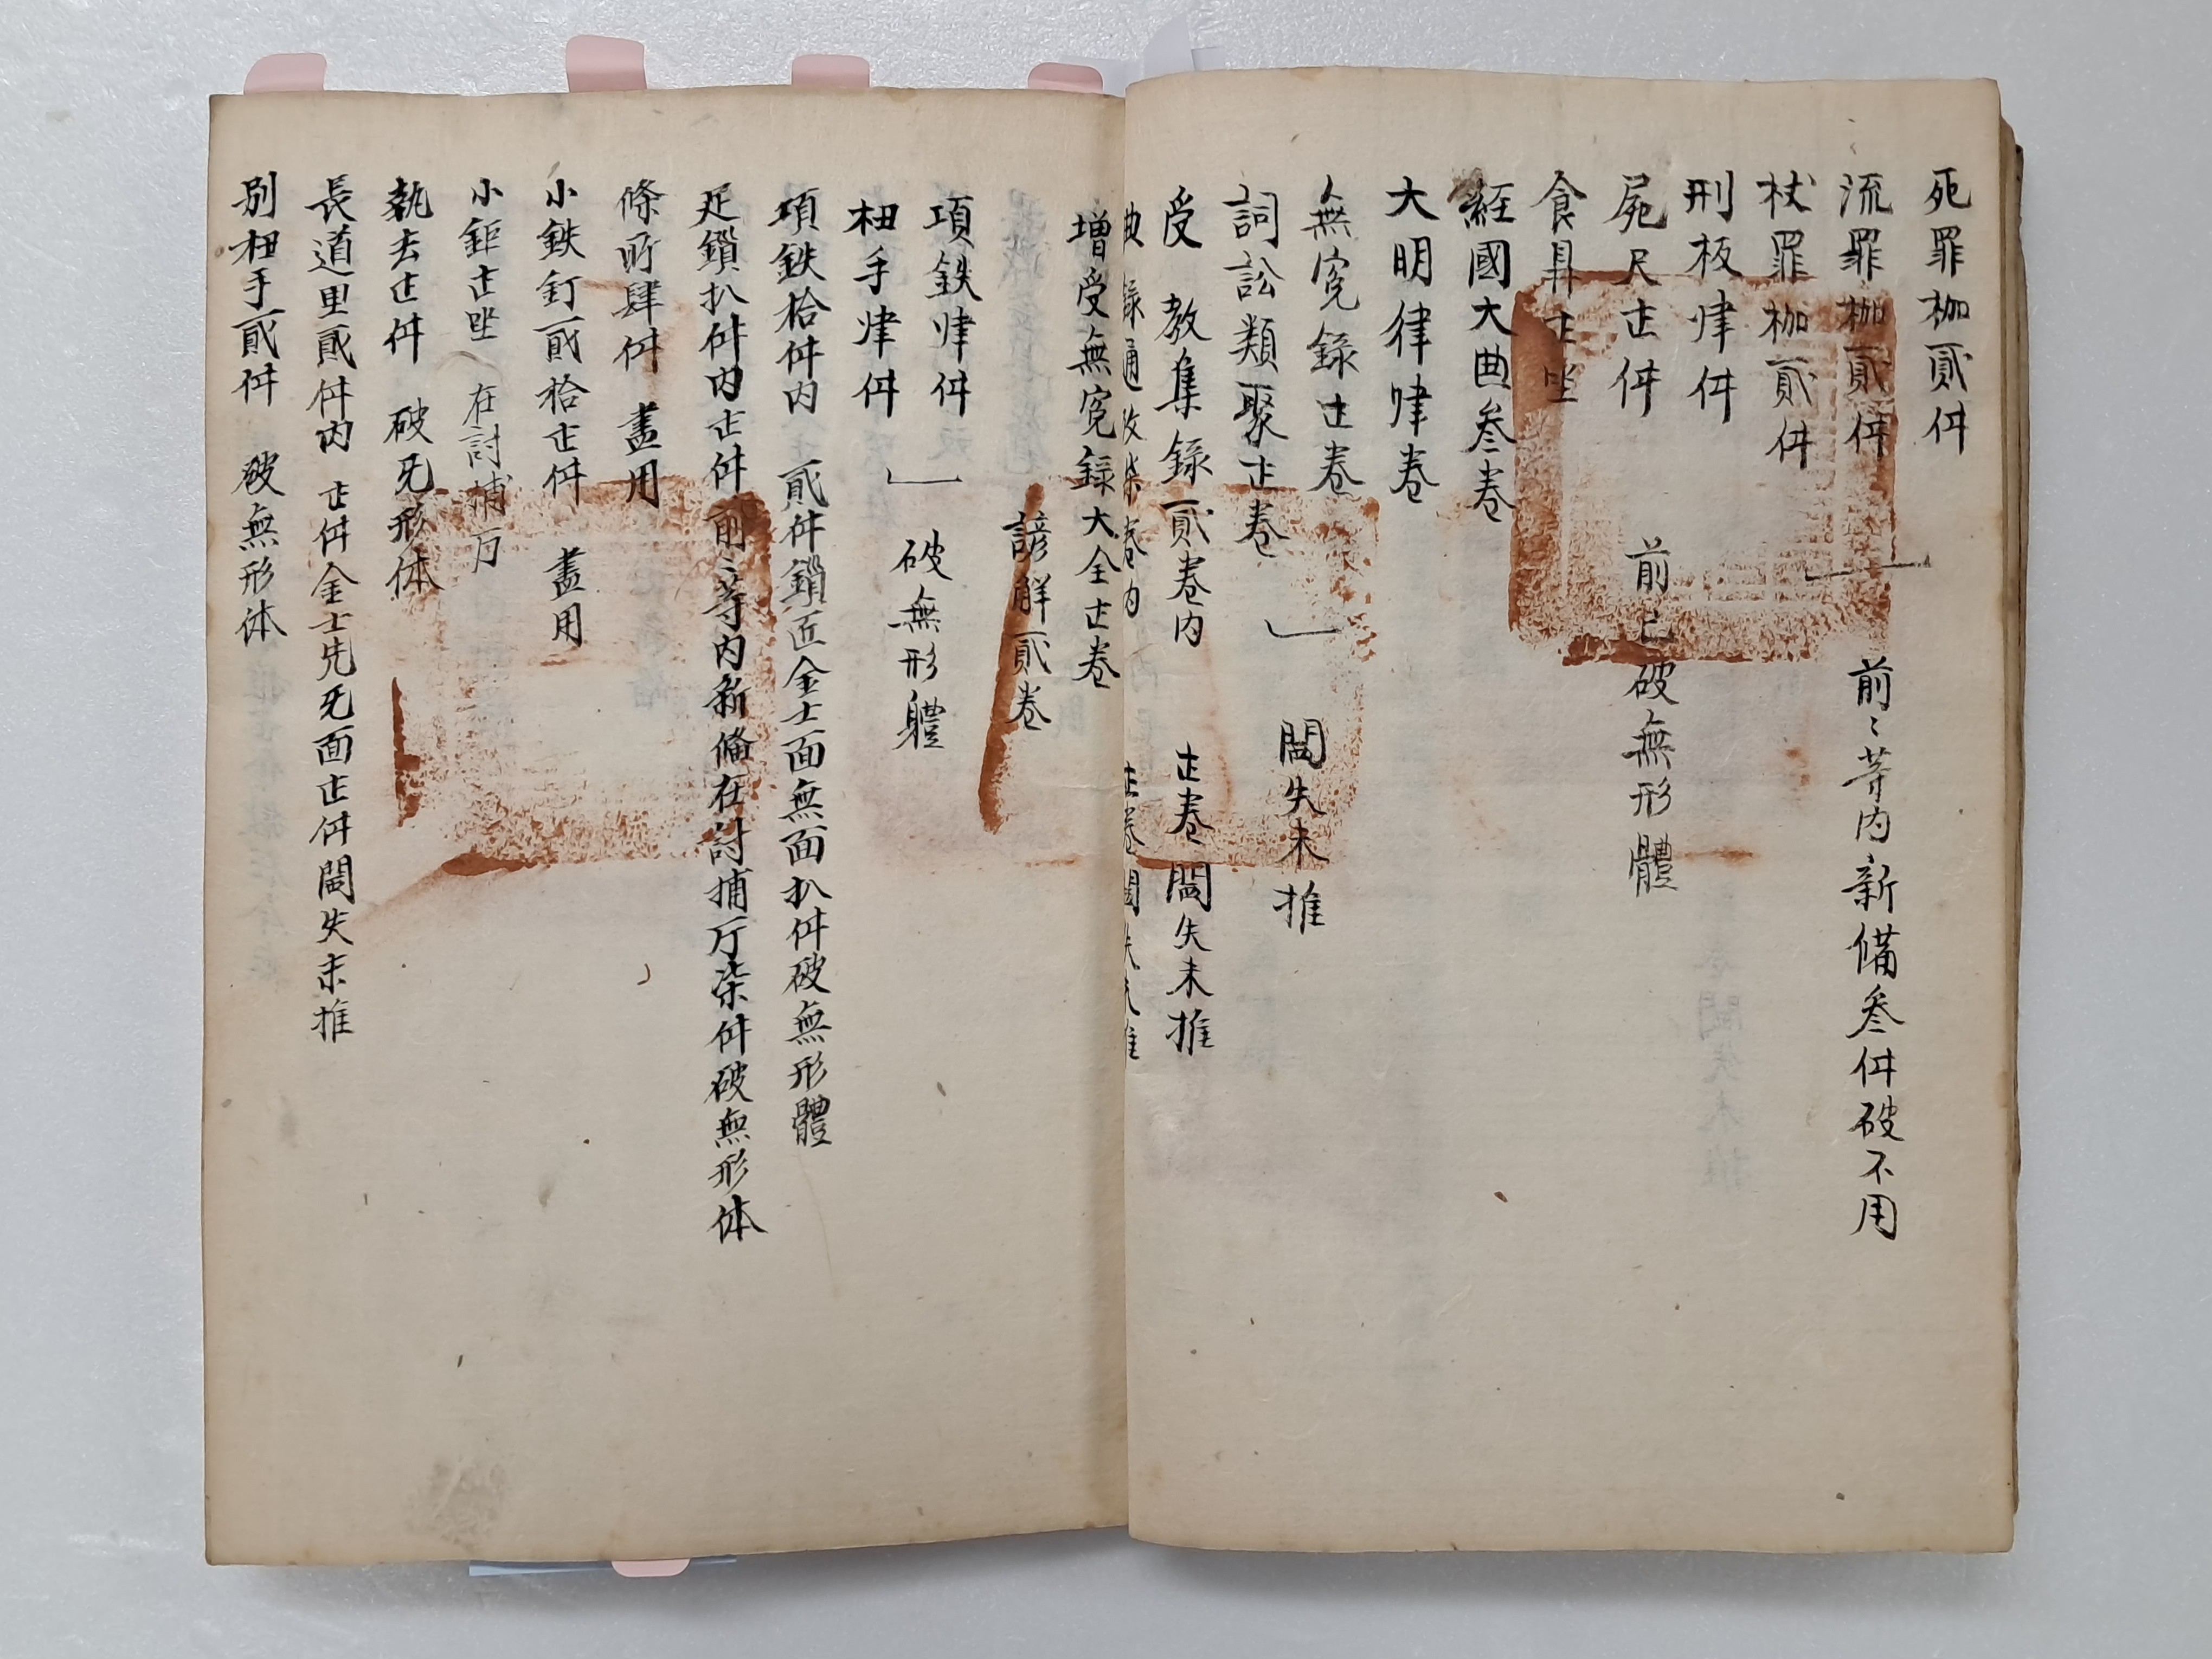 死罪枷貳件
流罪枷貳件 前〻等內新備叄件破不用
杖罪枷貳件
刑板㷠件
屍尺壱件 前已破無形體
食鼎壱坐
經國大典叄卷
大明律㷠卷
無寃錄壱卷
詞訟類聚壱卷 闕失未推
受 教集錄貳卷內 壱卷闕失未推
典錄通攷柒卷內 壱卷闕失未推
增受無寃錄大全壱卷
諺解貳卷
項鉄㷠件
杻手㷠件 破無形軆
項鉄拾件內 貳件鎖匠金士面無面扒件破無形體
足鎖扒件內壱件 前〻等內新備在討捕厅柒件破無形体
條所肆件 盡用
小鉄釘貳拾壱件 盡用
小鉅壱坐 在討捕厅
執去壱件 破旡形体
長道里貳件內 壱件金士先旡面壱件闕失未推
別杻手貳件 破無形体